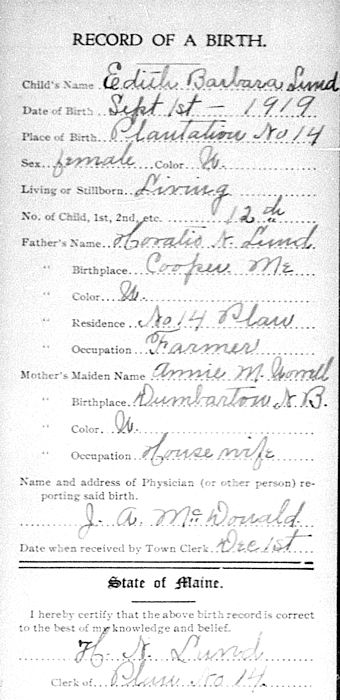 RECORD OF A BIRTH.
Child's Name Edith Barbara Lund
Date of Birth Sept 1st – 1919
Place of Birth Plantation No 14
Sex female Color W.
Living or Stillborn Living
No. of Child, 1st, 2nd, etc. 12th
Father's Name Horatio N. Lund
" Birthplace Cooper Me
" Color W.
" Residence No 14 Plan
" Occupation Farmer
Mother's Maiden Name Annie M.
" Birthplace Dumbarton N. B.
" Color W.
" Occupation House wife
Name and address of Physician (or other person) re-
porting said birth.
J. A. McDonald
Date when received by Town Clerk Dec 1st
State of Maine.
I hereby certify that the above birth record is correct
to the best of my knowledge and belief.
H. N. Lund
Clerk of Plan No 14